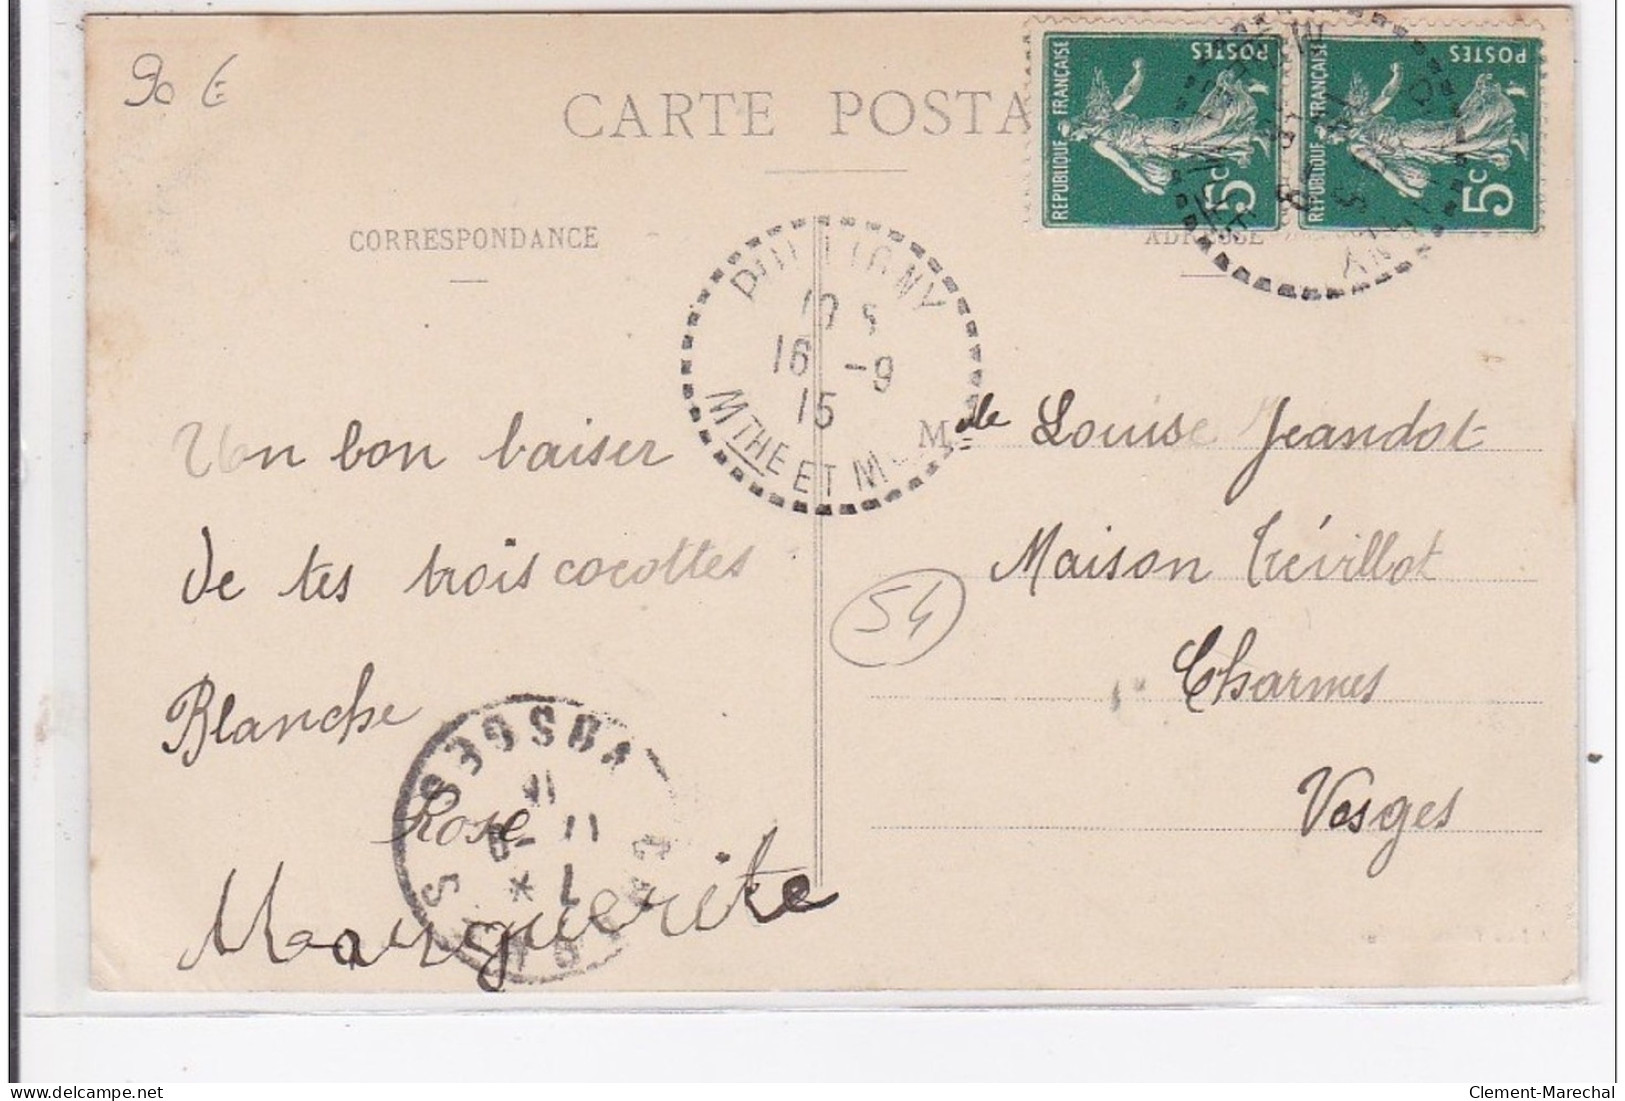 90 €
CARTE POSTA
CORRESPONDANCE
ADRESSE
REPUBLIQUE FRANÇAISE
POSTES
5c
REPUBLIQUE FRANÇAISE
POSTES
5c
PULLIGNY
16 -9
15
MTHE ET M
Un bon baiser
de tes trois cocottes
Blanche
Rose
Marguerite
Mlle Louise Jeandot
Maison Trévillot
Charmes
Vosges
54
VOSGES
Clement-Marechal